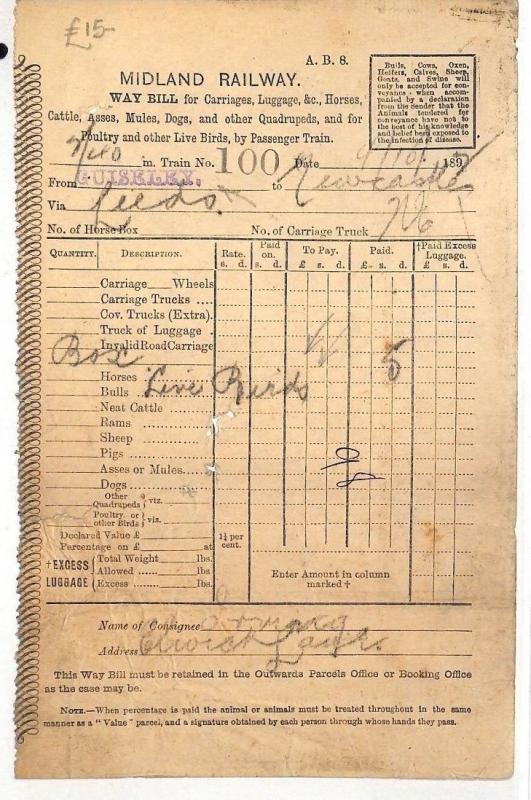 £15-
A. B. 8.
MIDLAND RAILWAY.
WAY BILL for Carriages, Luggage, &c., Horses,
Cattle, Asses, Mules, Dogs, and other Quadrupeds, and for
Poultry and other Live Birds, by Passenger Train.
Bulls, Cows, Oxen,
Heifers, Calves, Sheep,
Goats, and Swine will
only be accepted for con-
veyance when accom-
panied by a declaration
from the Sender that the
Animals tendered for
conveyance have not to
the best of his knowledge
and belief been exposed to
the infection of disease.
m. Train No. 100 Date 189
From GUISELEY. to Newcastle
Via Leeds
No. of Horse Box No. of Carriage Truck
QUANTITY. DESCRIPTION. Rate. s. d. Paid on. s. d. To Pay. £ s. d. Paid. £ s. d. †Paid Excess Luggage. £ s. d.
Carriage Wheels
Carriage Trucks ....
Cov. Trucks (Extra).
Truck of Luggage .
Invalid Road Carriage
Box
Horses Live Birds 5
Bulls
Neat Cattle
Rams
Sheep
Pigs
Asses or Mules
Dogs
Other Quadrupeds } viz.
Poultry or other Birds } viz.
Declared Value £
Percentage on £ at 1¼ per cent.
†EXCESS LUGGAGE { Total Weight lbs.
Allowed ...... lbs.
Excess ........ lbs.
Enter Amount in column
marked †
Name of Consignee
Address
This Way Bill must be retained in the Outwards Parcels Office or Booking Office
as the case may be.
NOTE.—When percentage is paid the animal or animals must be treated throughout in the same
manner as a "Value" parcel, and a signature obtained by each person through whose hands they pass.